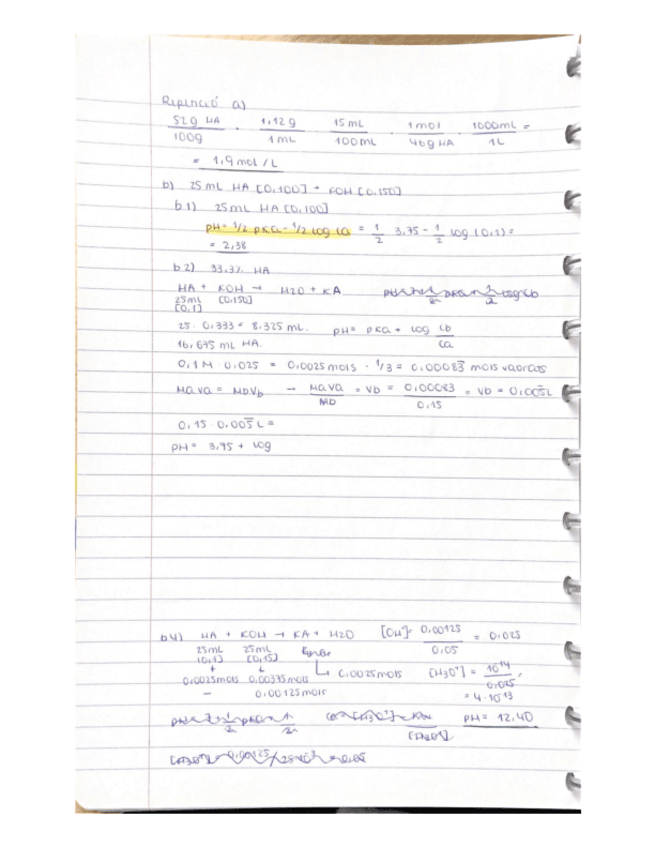 a)
52g HA / 100g · 1,12 g / 1 mL 15 mL / 100 mL · 1 mol / 46g HA · 1000mL / 1L =
= 1,9 mol / L
b) 25 mL HA [0,100] + KOH [0,150]
b.1) 25mL HA [0,100]
pH = 1/2 pKa - 1/2 log Ca = 1/2 3,75 - 1/2 log (0,1) =
= 2,38
b.2) 33,3% HA
HA + KOH → H2O + KA
25mL [0,150]
[0,1]
25 · 0,333 = 8,325 mL. pH = pKa + log Cb / Ca
16,675 mL HA.
0,1 M · 0,025 = 0,0025 mols · 1/3 = 0,00083 mols
MaVa = MbVb → MaVa / Mb = Vb = 0,00083 / 0,15 = Vb = 0,005L
0,15 · 0,005 L =
pH = 3,75 + log
b4) HA + KOH → KA + H2O [OH] = 0,00125 / 0,05 = 0,025
25mL 25mL
[0,1] [0,15]
0,0025mols 0,00375 mols 0,0025mols [H3O+] = 10^-14 / 0,025
- 0,00125 mols = 4·10^-13
pH = 12,40